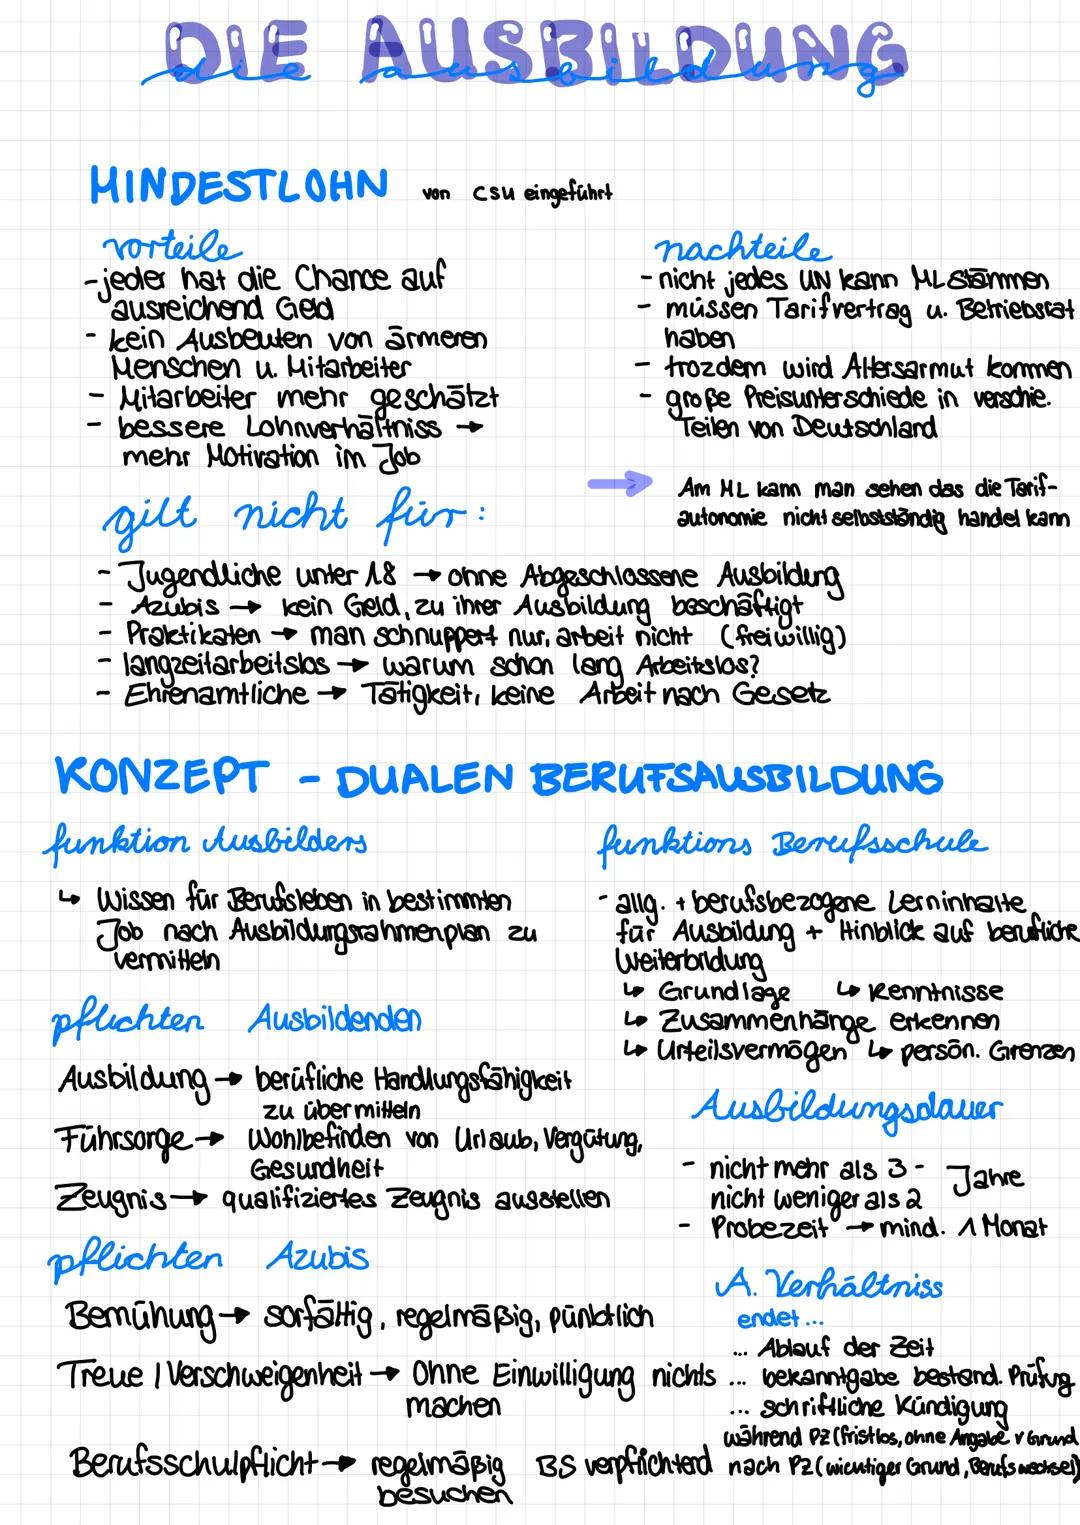 DIE AUSBILDUNG
die ausbildung
MINDESTLOHN von CSU eingeführt
vorteile
-jeder hat die Chance auf
ausreichend Geld
- kein Ausbeuten von ärmeren
Menschen u. Mitarbeiter
- Mitarbeiter mehr geschätzt
- bessere Lohnverhältniss →
mehr Motivation im Job
nachteile
- nicht jedes UN kann ML stämmen
- müssen Tarifvertrag u. Betriebsrat
haben
- trozdem wird Altersarmut kommen
- große Preisunterschiede in verschie.
Teilen von Deutschland
→ Am ML kann man sehen das die Tarif-
autonomie nicht selbstständig handel kann
gilt nicht für:
- Jugendliche unter 18 → ohne Abgeschlossene Ausbildung
- Azubis → kein Geld, zu ihrer Ausbildung beschäftigt
- Praktikaten → man schnuppert nur, arbeit nicht (freiwillig)
- langzeitarbeitslos → warum schon lang Arbeitslos?
- Ehrenamtliche → Tätigkeit, keine Arbeit nach Gesetz
KONZEPT - DUALEN BERUFSAUSBILDUNG
funktion Ausbilders
↳ Wissen für Berufsleben in bestimmten
Job nach Ausbildungsrahmenplan zu
vermitteln
pflichten Ausbildenden
Ausbildung → berüfliche Handlungsfähigkeit
zu übermitteln
Führsorge → Wohlbefinden von Urlaub, Vergütung,
Gesundheit
Zeugnis → qualifiziertes Zeugnis ausstellen
pflichten Azubis
Bemühung → sorfältig, regelmäßig, pünktlich
Treue / Verschweigenheit → Ohne Einwilligung nichts
machen
Berufsschulpflicht → regelmäßig BS verpflichterd
besuchen
funktions Berufsschule
- allg. + berufsbezogene Lerninhalte
für Ausbildung + Hinblick auf berufliche
Weiterbildung
↳ Grundlage ↳ Kenntnisse
↳ Zusammenhänge erkennen
↳ Urteilsvermögen ↳ persön. Grenzen
Ausbildungsdauer
- nicht mehr als 3 - Jahre
nicht weniger als 2
- Probezeit → mind. 1 Monat
A. Verhältniss
endet...
... Ablauf der Zeit
... bekanntgabe bestand. Prüfung
... schriftliche Kündigung
während PZ (fristlos, ohne Angabe v Grund
nach PZ (wichtiger Grund, Berufswechsel)